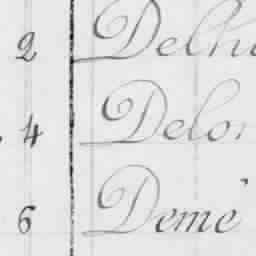 2 Delh
4 Delo
6 Deme